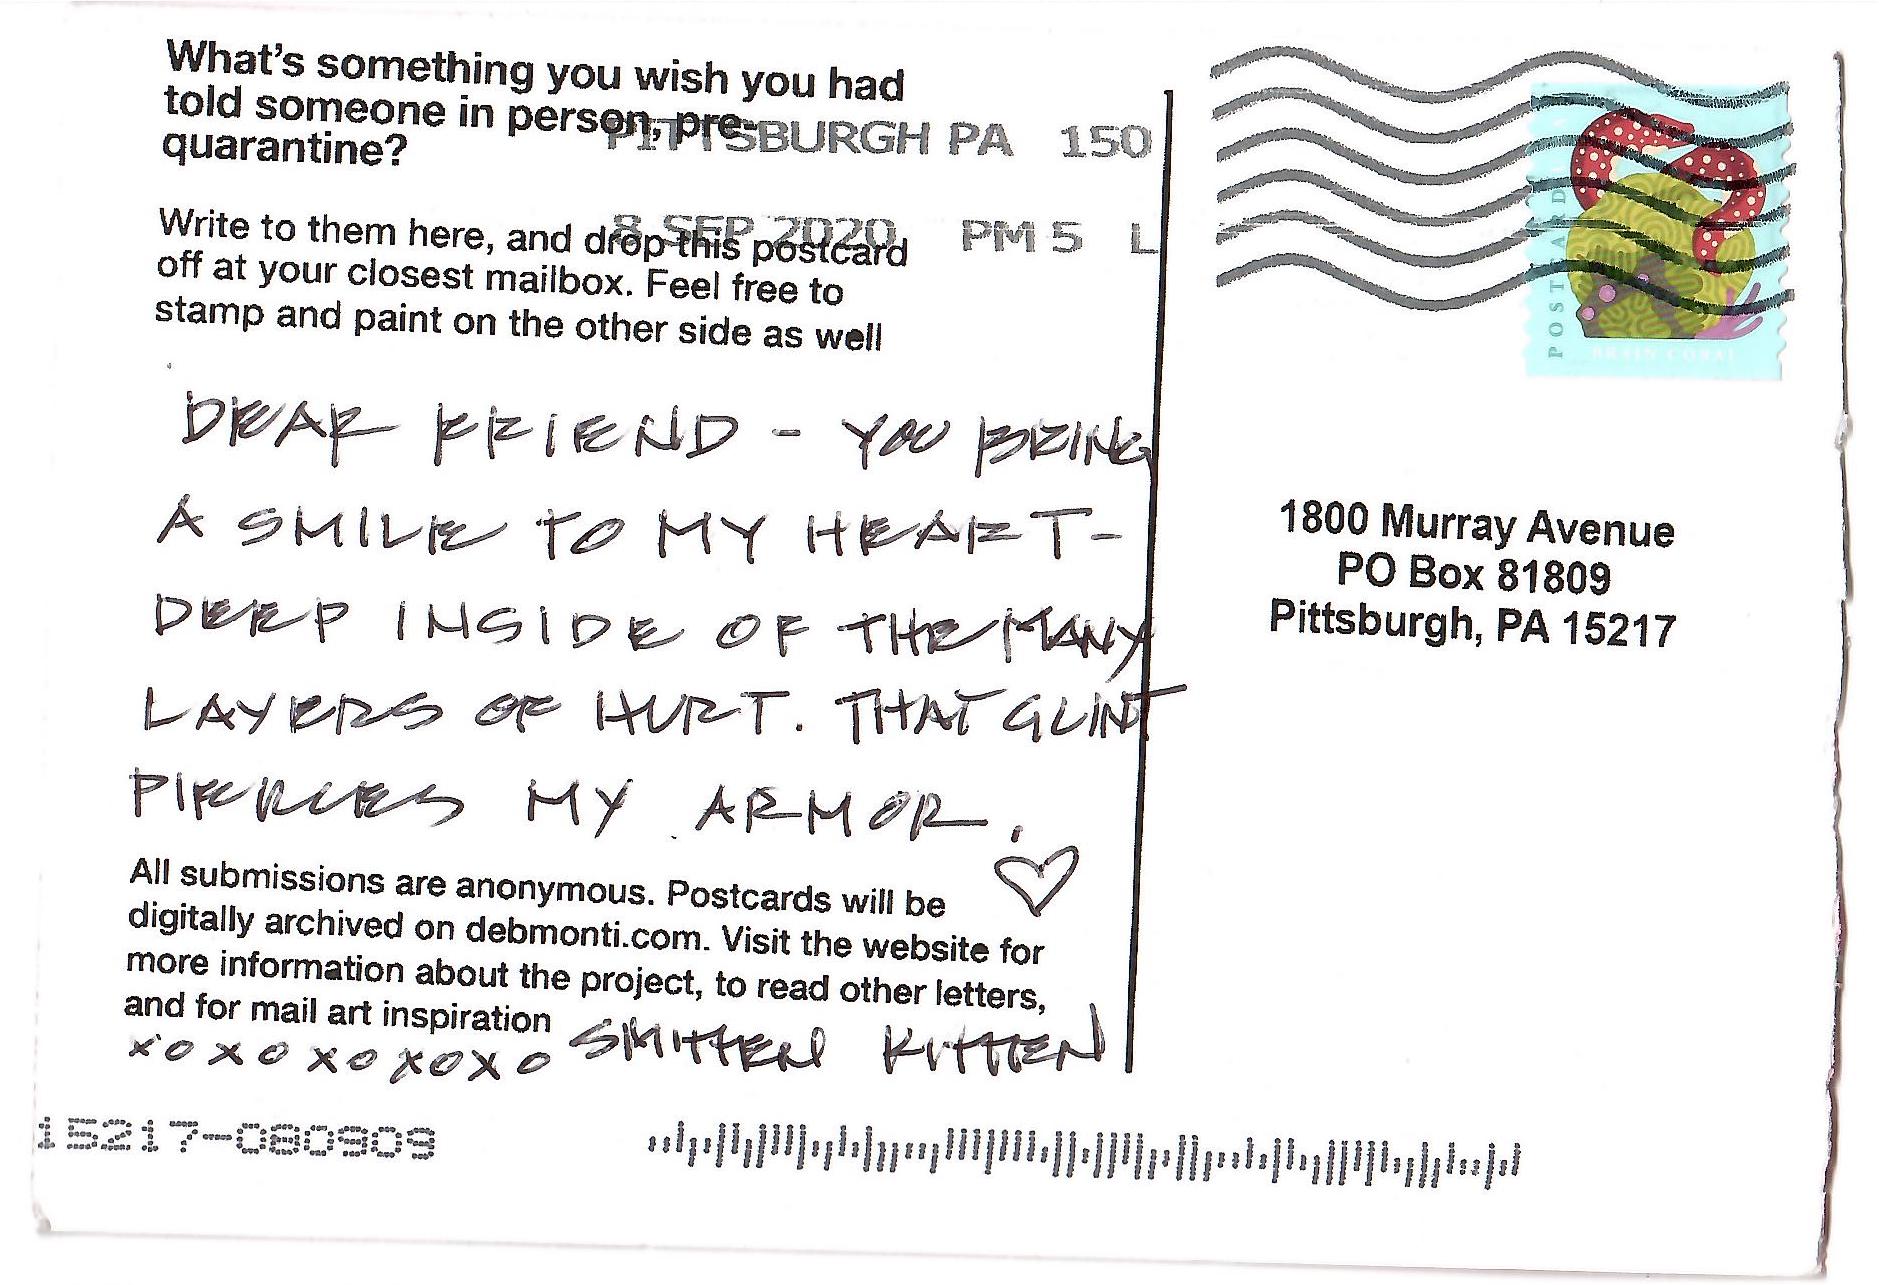 What's something you wish you had
told someone in person, pre-
quarantine?
PITTSBURGH PA 150
8 SEP 2020 PM 5 L
Write to them here, and drop this postcard
off at your closest mailbox. Feel free to
stamp and paint on the other side as well
DEAR FRIEND - YOU BRING
A SMILE TO MY HEART -
DEEP INSIDE OF THE MANY
LAYERS OF HURT. THAT GLINT
PIERCES MY ARMOR.
All submissions are anonymous. Postcards will be
digitally archived on debmonti.com. Visit the website for
more information about the project, to read other letters,
and for mail art inspiration
xoxoxoxoxo SMITTEN KITTEN
POSTCARD
BRAIN CORAL
1800 Murray Avenue
PO Box 81809
Pittsburgh, PA 15217
15217-080909